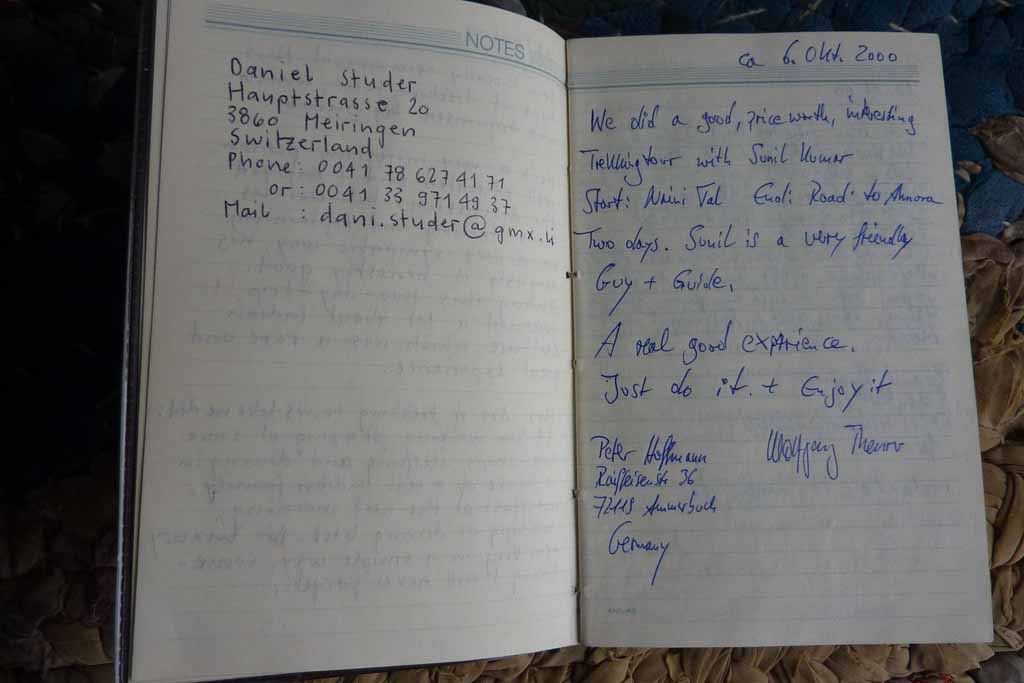 NOTES
Daniel Studer
Hauptstrasse 20
3860 Meiringen
Switzerland
Phone: 0041 78 627 41 71
or: 0041 33 971 49 37
Mail : dani.studer@gmx.li
ca 6. Okt. 2000
We did a good, price worth, interesting
Trekkingtour with Sunil Kumar
Start: Naini Tal End: Road to Almora
Two days. Sunil is a very friendly
Guy + Guide.
A real good experience.
Just do it. + Enjoy it
Peter Hoffmann Wolfgang
Raiffeisenstr. 36
72119 Ammerbuch
Germany